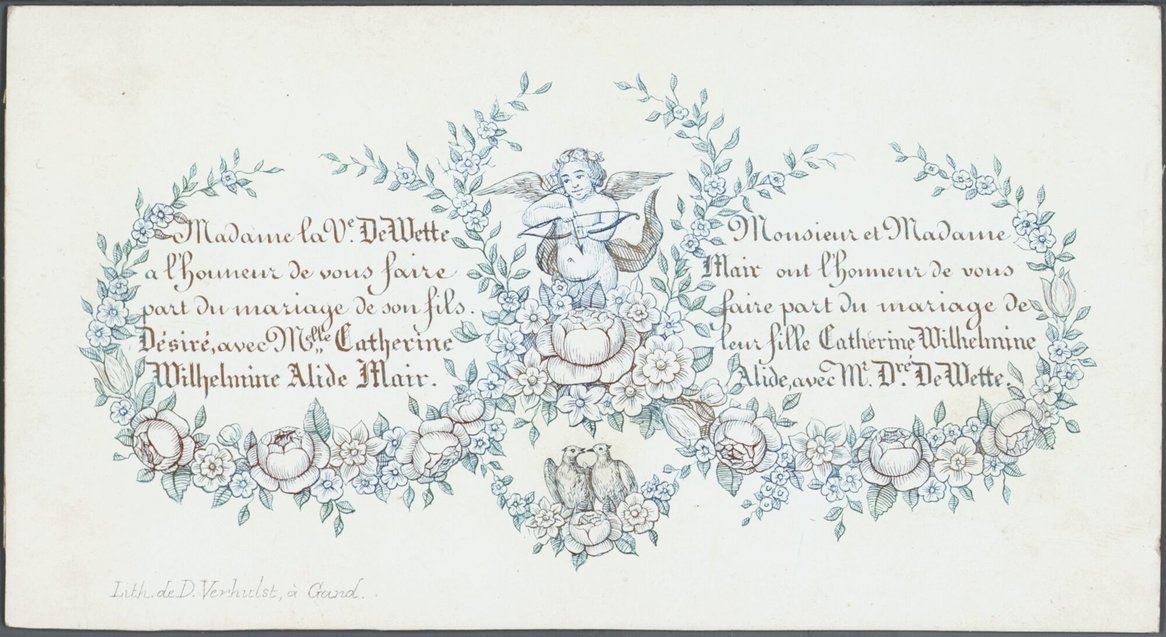 Madame la Ve. De Wette
a l'honneur de vous faire
part du mariage de son fils.
Désiré, avec Melle Catherine
Wilhelmine Alide Mair.
Monsieur et Madame
Mair ont l'honneur de vous
faire part du mariage de
leur fille Catherine Wilhelmine
Alide, avec Mr. Dré. De Wette.
Lith. de D. Verhulst, à Gand.